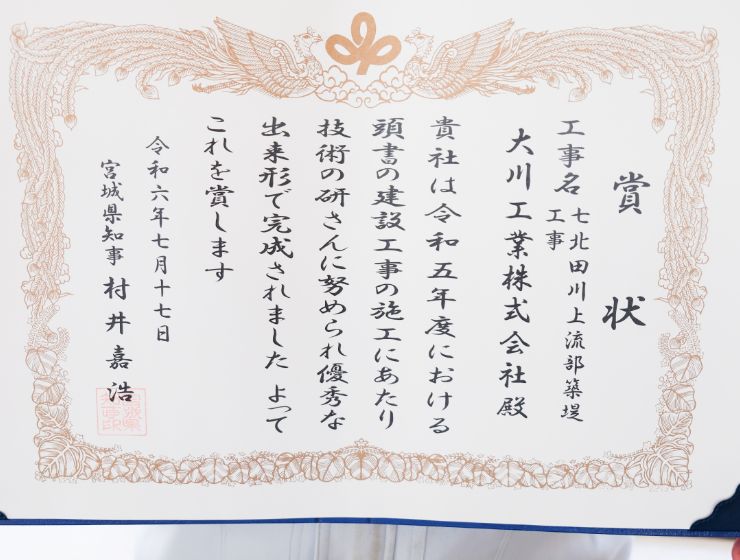 賞状
工事名 七北田川上流部築堤
工事
大川工業株式会社殿
貴社は令和五年度における
頭書の建設工事の施工にあたり
技術の研さんに努められ優秀な
出来形で完成されました よって
これを賞します
令和六年七月十七日
宮城県知事 村井嘉浩